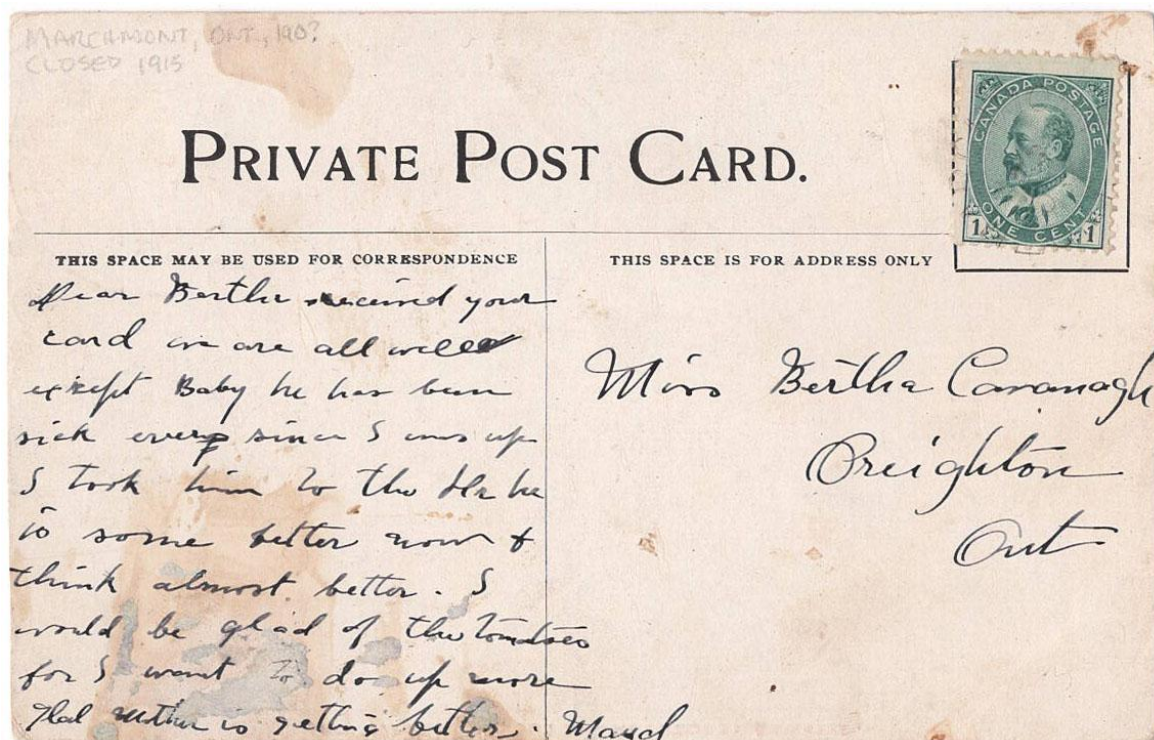 MARCHMONT, ONT., 190?
CLOSED 1915
CANADA POSTAGE
ONE CENT
1 1
PRIVATE POST CARD.
THIS SPACE MAY BE USED FOR CORRESPONDENCE
Dear Bertha received your
card we are all well
except Baby he has been
sick ever since I was up
I took him to the Dr he
is some better now &
think almost better. I
would be glad of the tomatoes
for I want to do up more
Glad Mother is getting better. Maud
THIS SPACE IS FOR ADDRESS ONLY
Miss Bertha Cavanagh
Creighton
Ont